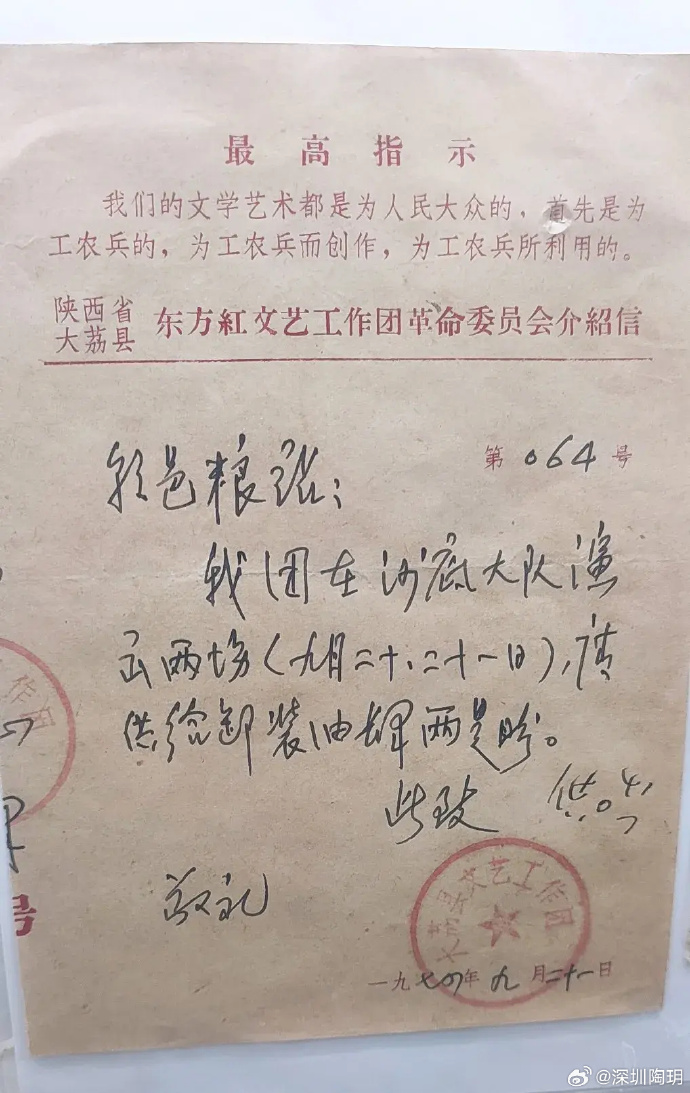 最高指示
我们的文学艺术都是为人民大众的，首先是为
工农兵的，为工农兵而创作，为工农兵所利用的。
陕西省
大荔县 东方紅文艺工作团革命委员会介紹信
第 064 号
邑粮站：
我团在沙底大队演
出两场（九月二十、二十一日），请
供给卸装油 两 。
此致 供
敬礼
大荔县文艺工作团
一九七四年九月二十一日
作团
号
@深圳陶玥